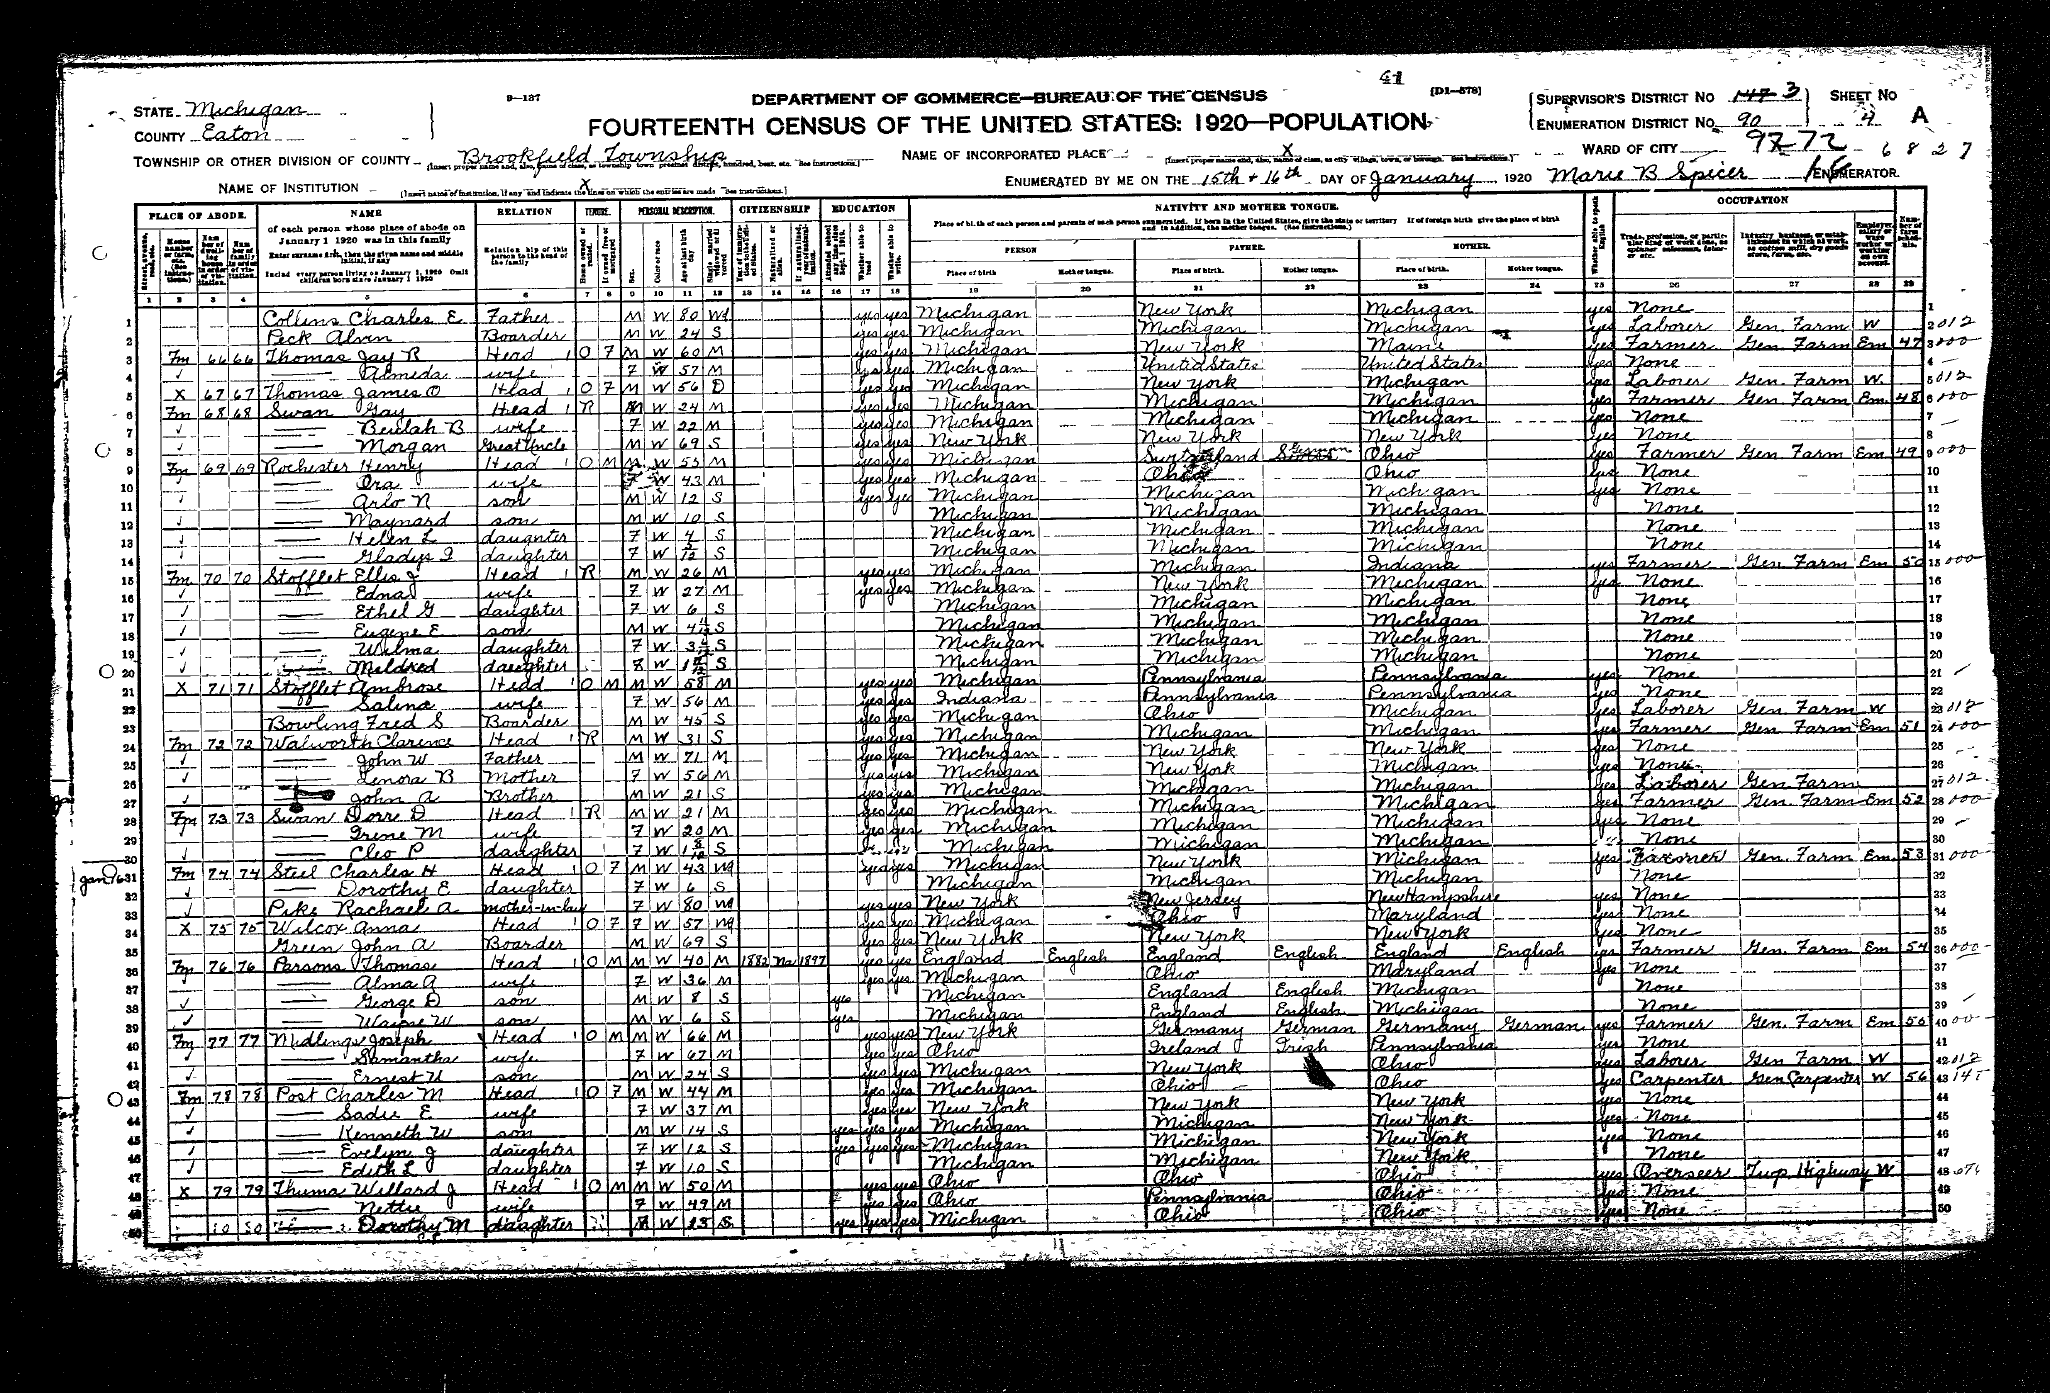 41
9—137
DEPARTMENT OF COMMERCE—BUREAU OF THE CENSUS
[D1—578]
STATE Michigan
COUNTY Eaton
FOURTEENTH CENSUS OF THE UNITED STATES: 1920—POPULATION
SUPERVISOR'S DISTRICT No 147 3
SHEET No
ENUMERATION DISTRICT No 90
4 A
TOWNSHIP OR OTHER DIVISION OF COUNTY Brookfield Township
NAME OF INCORPORATED PLACE X
WARD OF CITY 9272 6827
NAME OF INSTITUTION X
ENUMERATED BY ME ON THE 15th + 16th DAY OF January, 1920 Marie B Spicer ENUMERATOR.
PLACE OF ABODE. NAME RELATION TENURE. PERSONAL DESCRIPTION. CITIZENSHIP EDUCATION NATIVITY AND MOTHER TONGUE. OCCUPATION
of each person whose place of abode on January 1 1920 was in this family
PERSON FATHER. MOTHER.
Place of birth. Mother tongue. Place of birth. Mother tongue. Place of birth. Mother tongue.
1 2 3 4 5 6 7 8 9 10 11 12 13 14 15 16 17 18 19 20 21 22 23 24 25 26 27 28 29
1 Collins Charles E Father M W 80 Wd yes yes Michigan New York Michigan yes None 1
2 Peck Alvin Boarder M W 24 S yes yes Michigan Michigan Michigan yes Laborer Gen. Farm W 2 012
3 Fm 66 66 Thomas Jay R Head 1 O F M W 60 M yes yes Michigan New York Maine yes Farmer Gen. Farm Em 47 3 000
4 Almeda wife F W 57 M yes yes Michigan United States United States yes None 4
5 X 67 67 Thomas James O Head 1 O F M W 56 D yes yes Michigan New York Michigan yes Laborer Gen. Farm W. 5 012
6 Fm 68 68 Swan Gay Head 1 R M W 24 M yes yes Michigan Michigan Michigan yes Farmer Gen. Farm Em 48 6 000
7 Beulah B wife F W 22 M yes yes Michigan Michigan Michigan yes None 7
8 Morgan Great Uncle M W 69 S yes yes New York New York New York yes None 8
9 Fm 69 69 Rochester Henry Head 1 O M M W 55 M yes yes Michigan Switzerland German Ohio yes Farmer Gen Farm Em 49 9 000
10 Ora wife F W 43 M yes yes Michigan Ohio Ohio yes None 10
11 Arlo N son M W 12 S yes yes Michigan Michigan Michigan yes None 11
12 Maynard son M W 10 S Michigan Michigan Michigan None 12
13 Helen L daughter F W 4 S Michigan Michigan Michigan None 13
14 Gladys I daughter F W S Michigan Michigan Michigan None 14
15 Fm 70 70 Stofflet Ellis J Head 1 R M W 26 M yes yes Michigan Michigan Indiana yes Farmer Gen Farm Em 50 15 000
16 Edna wife F W 27 M yes yes Michigan New York Michigan yes None 16
17 Ethel G daughter F W 6 S Michigan Michigan Michigan None 17
18 Eugene E son M W 4 S Michigan Michigan Michigan None 18
19 Wilma daughter F W 3 S Michigan Michigan Michigan None 19
20 Mildred daughter F W 1 S Michigan Michigan Michigan None 20
21 X 71 71 Stofflet Ambrose Head 1 O M M W 58 M yes yes Michigan Pennsylvania Pennsylvania yes None 21
22 Salina wife F W 56 M yes yes Indiana Pennsylvania Pennsylvania yes None 22
23 Bowling Fred S Boarder M W 45 S yes yes Michigan Ohio Michigan yes Laborer Gen Farm W 23 012
24 Fm 72 72 Walworth Clarence Head 1 R M W 31 S yes yes Michigan Michigan Michigan yes Farmer Gen Farm Em 51 24 000
25 John W Father M W 71 M yes yes Michigan New York New York yes None 25
26 Lenora B Mother F W 56 M yes yes Michigan New York Michigan yes None 26
27 John A Brother M W 21 S yes yes Michigan Michigan Michigan yes Laborer Gen Farm 27 012
28 Fm 73 73 Swan Dorr D Head 1 R M W 21 M yes yes Michigan Michigan Michigan yes Farmer Gen. Farm Em 52 28 000
29 Irene M wife F W 20 M yes yes Michigan Michigan Michigan yes None 29
30 Cleo P daughter F W 1 S Michigan Michigan Michigan None 30
Jan 16 31 Fm 74 74 Steel Charles H Head 1 O F M W 43 Wd yes yes Michigan New York Michigan yes Farmer Gen. Farm Em 53 31 000
32 Dorothy E daughter F W 6 S Michigan Michigan Michigan None 32
33 Pike Rachael A mother-in-law F W 80 Wd yes yes New York New Jersey New Hampshire yes None 33
34 X 75 75 Wilcox Anna Head 1 O F F W 57 Wd yes yes Michigan Ohio Maryland yes None 34
35 Green John A Boarder M W 69 S yes yes New York New York New York yes None 35
36 Fm 76 76 Parsons Thomas Head 1 O M M W 40 M 1882 Na 1897 yes yes England English England English England English yes Farmer Gen. Farm Em 54 36 000
37 Alma A wife F W 36 M yes yes Michigan Ohio Maryland yes None 37
38 George D son M W 8 S yes Michigan England English Michigan None 38
39 Wayne W son M W 6 S yes Michigan England English Michigan None 39
40 Fm 77 77 Midling Joseph Head 1 O M M W 66 M yes yes New York Germany German Germany German yes Farmer Gen. Farm Em 55 40 00
41 Samantha wife F W 67 M yes yes Ohio Ireland Irish Pennsylvania yes None 41
42 Ernest U son M W 24 S yes yes Michigan New York Ohio yes Laborer Gen Farm W 42 012
43 Fm 78 78 Post Charles M Head 1 O F M W 44 M yes yes Michigan Ohio Ohio yes Carpenter Gen Carpenter W 56 43
44 Sadie E wife F W 37 M yes yes New York New York New York yes None 44
45 Kenneth W son M W 14 S yes yes yes Michigan Michigan New York yes None 45
46 Evelyn J daughter F W 12 S yes yes yes Michigan Michigan New York yes None 46
47 Edith L daughter F W 10 S Michigan Michigan New York None 47
48 X 79 79 Thuma Willard J Head 1 O M M W 50 M yes yes Ohio Ohio Ohio yes Overseer Twp Highway W 48
49 Nettie wife F W 49 M yes yes Ohio Pennsylvania Ohio yes None 49
50 Dorothy M daughter F W 23 S yes yes yes Michigan Ohio Ohio yes None 50